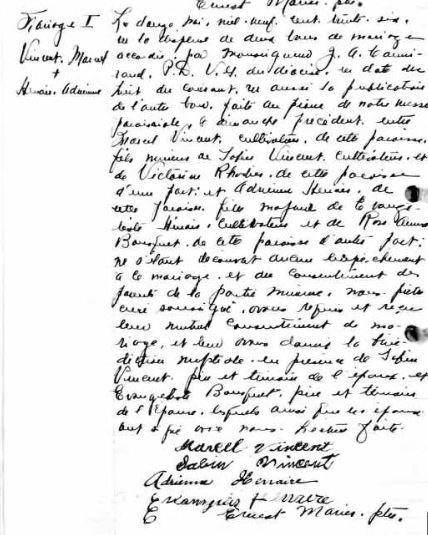 Ernest Marier. ptre.
Mariage I
Vincent, Marcel
+
Henaire, Adrienne
Le douze mai, mil-neuf cent trente-six,
vu la dispense de deux bans de mariage
accordée par Monseigneur J. A.
P.D. V.G. du diocèse, en date du
huit du courant, vu aussi la publication
de l'autre ban, faite au prône de notre messe
paroissiale, le dimanche précédent entre
Marcel Vincent, cultivateur, de cette paroisse,
fils mineur de Vincent, cultivateur, et
de Victorine de cette paroisse
d'une part; et Adrienne de
cette paroisse, fille majeure de
cultivateur et de Rose Anna
Bousquet, de cette paroisse d'autre part;
ne s'étant découvert aucun empêchement
à ce mariage, et du consentement des
parents de la partie mineure, nous, prêtre
curé soussigné, avons requis et reçu
leur mutuel consentement de ma-
riage, et leur avons donné la béné-
diction nuptiale en présence de
Vincent, père et témoin de l'époux, et
Bousquet, père et témoin
de l'épouse, lesquels ainsi que les époux
ont signé avec nous. Lecture faite.
Marcell Vincent
Vincent
Adrienne Henaire
Ernest Marier. ptre.